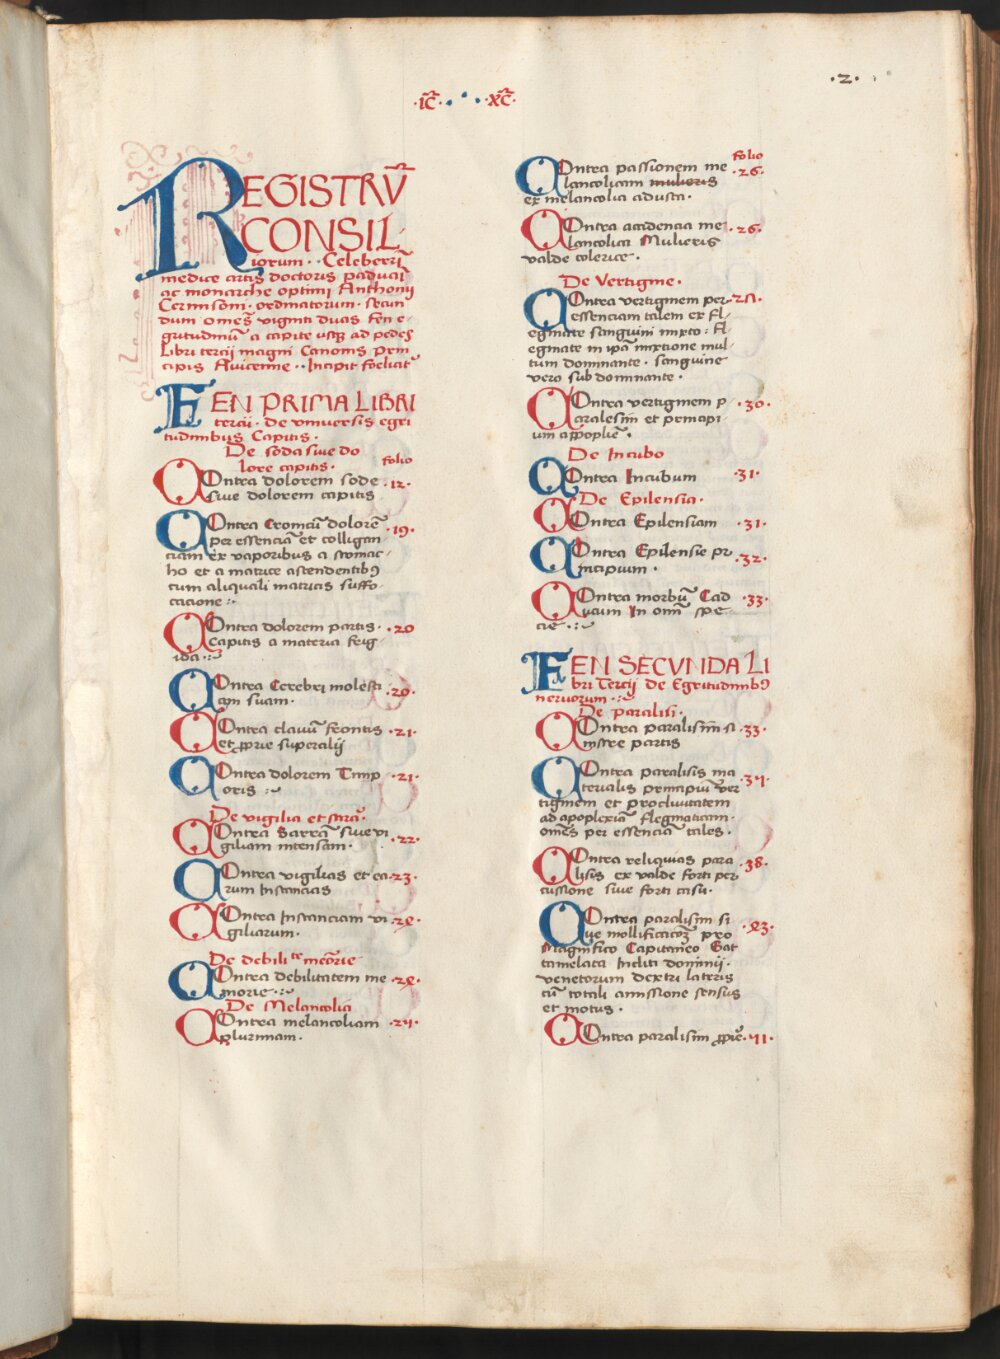 ·2·
·ic̃· · · ·xc̃·
REGISTRV̄
CONSIL
iorum · · Celeberri
medice artis doctoris paduai
ac monarche optimi Anthonij
Cermisoni · ordinatorum · secun
dum om̄es viginti duas fen e
gritudinū a capite usq̨ ad pedes
Libri tercij magni Canonis prin
cipis Avicenne · · Incipit foeliciꝉ
FEN PRIMA LIBRI
tercij · de universis egri
tudinibus Capitis ·
De soda sive do
lore capitis · folio
COntra dolorem sode · 12 ·
sive dolorem capitis
COntra Cronicū dolorē · 19 ·
per essenciā et colligan
ciam ex vaporibus a stomac
ho et a matrice ascendentibꝰ
cum aliquali matricis suffo
cacione :~
COntra dolorem partis · · 20
Capitis a materia frig
ida ·:~
COntra Cerebri molesti · 20 ·
am suam ·
COntra clavū frontis · 21 ·
et ꝓprie superalij
COntra dolorem Timp · 21 ·
oris :~
De vigilia et
COntra Sarrā sive vi
giliam intensam · · 22 ·
COntra vigilias et ca · 23 ·
rum Instancias
COntra Instanciam vi · 24 ·
giliarum ·
De debili te meōrie
COntra debilitatem me · 24 ·
morie ·:~
De Melancolia
COntra melancoliam · 24 ·
plurimam ·
folio
COntra passionem me · 26 ·
lancolicam mulieris
ex melancolia adusta ·
COntra accidencia me · 26 ·
lancolica Mulieris
valde colerice ·
De Vertigine ·
COntra vertiginem per
essenciam talem ex fl
egmate sanguini mixto : fl
egmate in ip̄a mixtione mul
tum dominante · sanguine
vero sub dominante ·
COntra vertiginem p · 30 ·
aralesim et principi
um appoplexie ·
De Incubo
COntra Incubum · 31 ·
De Epilensia ·
COntra Epilensiam · 31 ·
COntra Epilensie pr · 32 ·
incipium ·
COntra morbū Cad · 33 ·
ucum In omī spe
cie ·:~
FEN SECVNDA LI
bri Tercij de Egritudinibꝰ
nervorum ·:~
De paralisi ·
COntra paralisim si · 33 ·
nistre partis
COntra paralisis ma · 34 ·
terialis principiū ver
tiginem et proclivitatem
ad apoplexiā flegmaticam ·
om̄es per essenciā tales ·
COntra reliquias para · 38 ·
lisis ex valde forti per
cussione sive forti casu ·
COntra paralisim si · 43 ·
ve mollificacōꝫ pro
Magnifico Capitaneo Gat
tamelata Incliti dominij
venetorum dextri lateris
cū totali amissione sensus
et motus ·
COntra paralisim ꝓprie · 41 ·